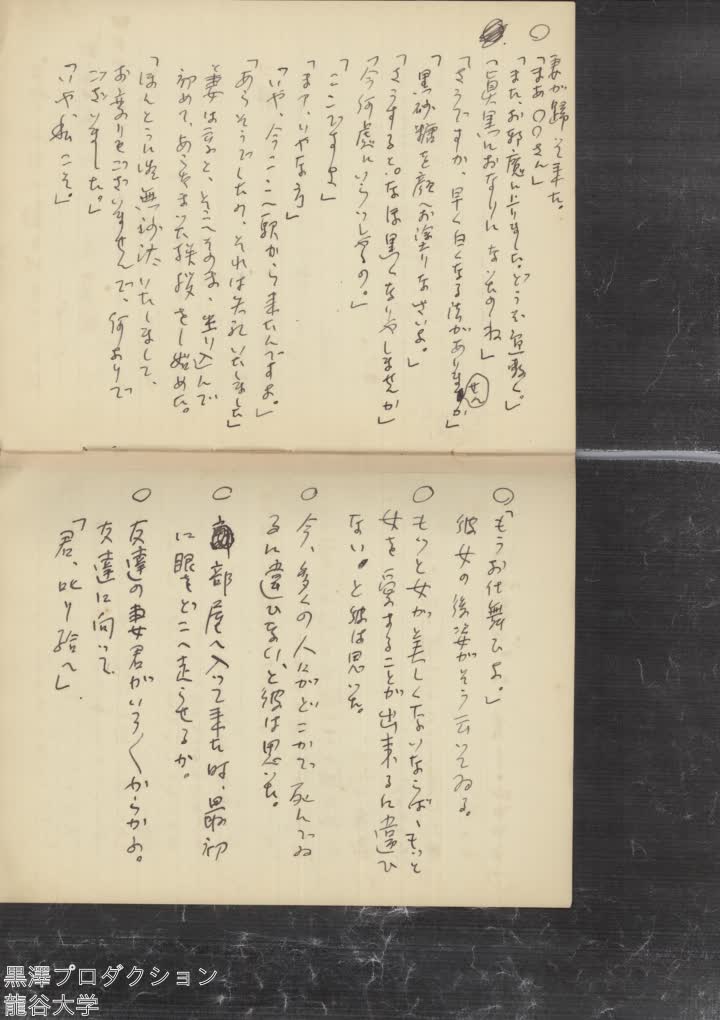 ○
妻が帰って来た。
「まあ〇〇さん」
「また、お邪魔に上りました。どうぞ宜敷く。」
「眞黒におなりになったのね」
「さうですか、早く白くなる法がありませんか」
「黒砂糖を顔へお塗りなさいよ。」
「さうすると。なほ黒くなりやしませんか」
「今何處にいらつしやるの。」
「ここですよ」
「まア、いやな方」
「いや、今ここへ駅から来たんですよ。」
「あらそうでしたの、それは失礼いたしました」
妻は云ふと、そこへそのまゝ坐り込んで
初めて、あらたまつた挨拶をし始めた。
「ほんとうに御無沙汰いたしまして、
お変りもございませんで、何よりで
ございました。」
「いや、私こそ。」
○「もうお仕舞ひよ。」
彼女の後姿がそう云つてゐる。
○もつと女が美しくないならば、もつと
女を愛することが出来るに違ひ
ない。と彼は思つた。
○今、多くの人がどこかで死んでゐ
るに違ひない、と彼は思つた。
○部屋へ入つて来た時、最初
に眼をどこへ走らせるか。
○友達の妻君がいろ〱からかふ。
友達に向つて
「君、叱り給へ」
黒澤プロダクション
龍谷大学